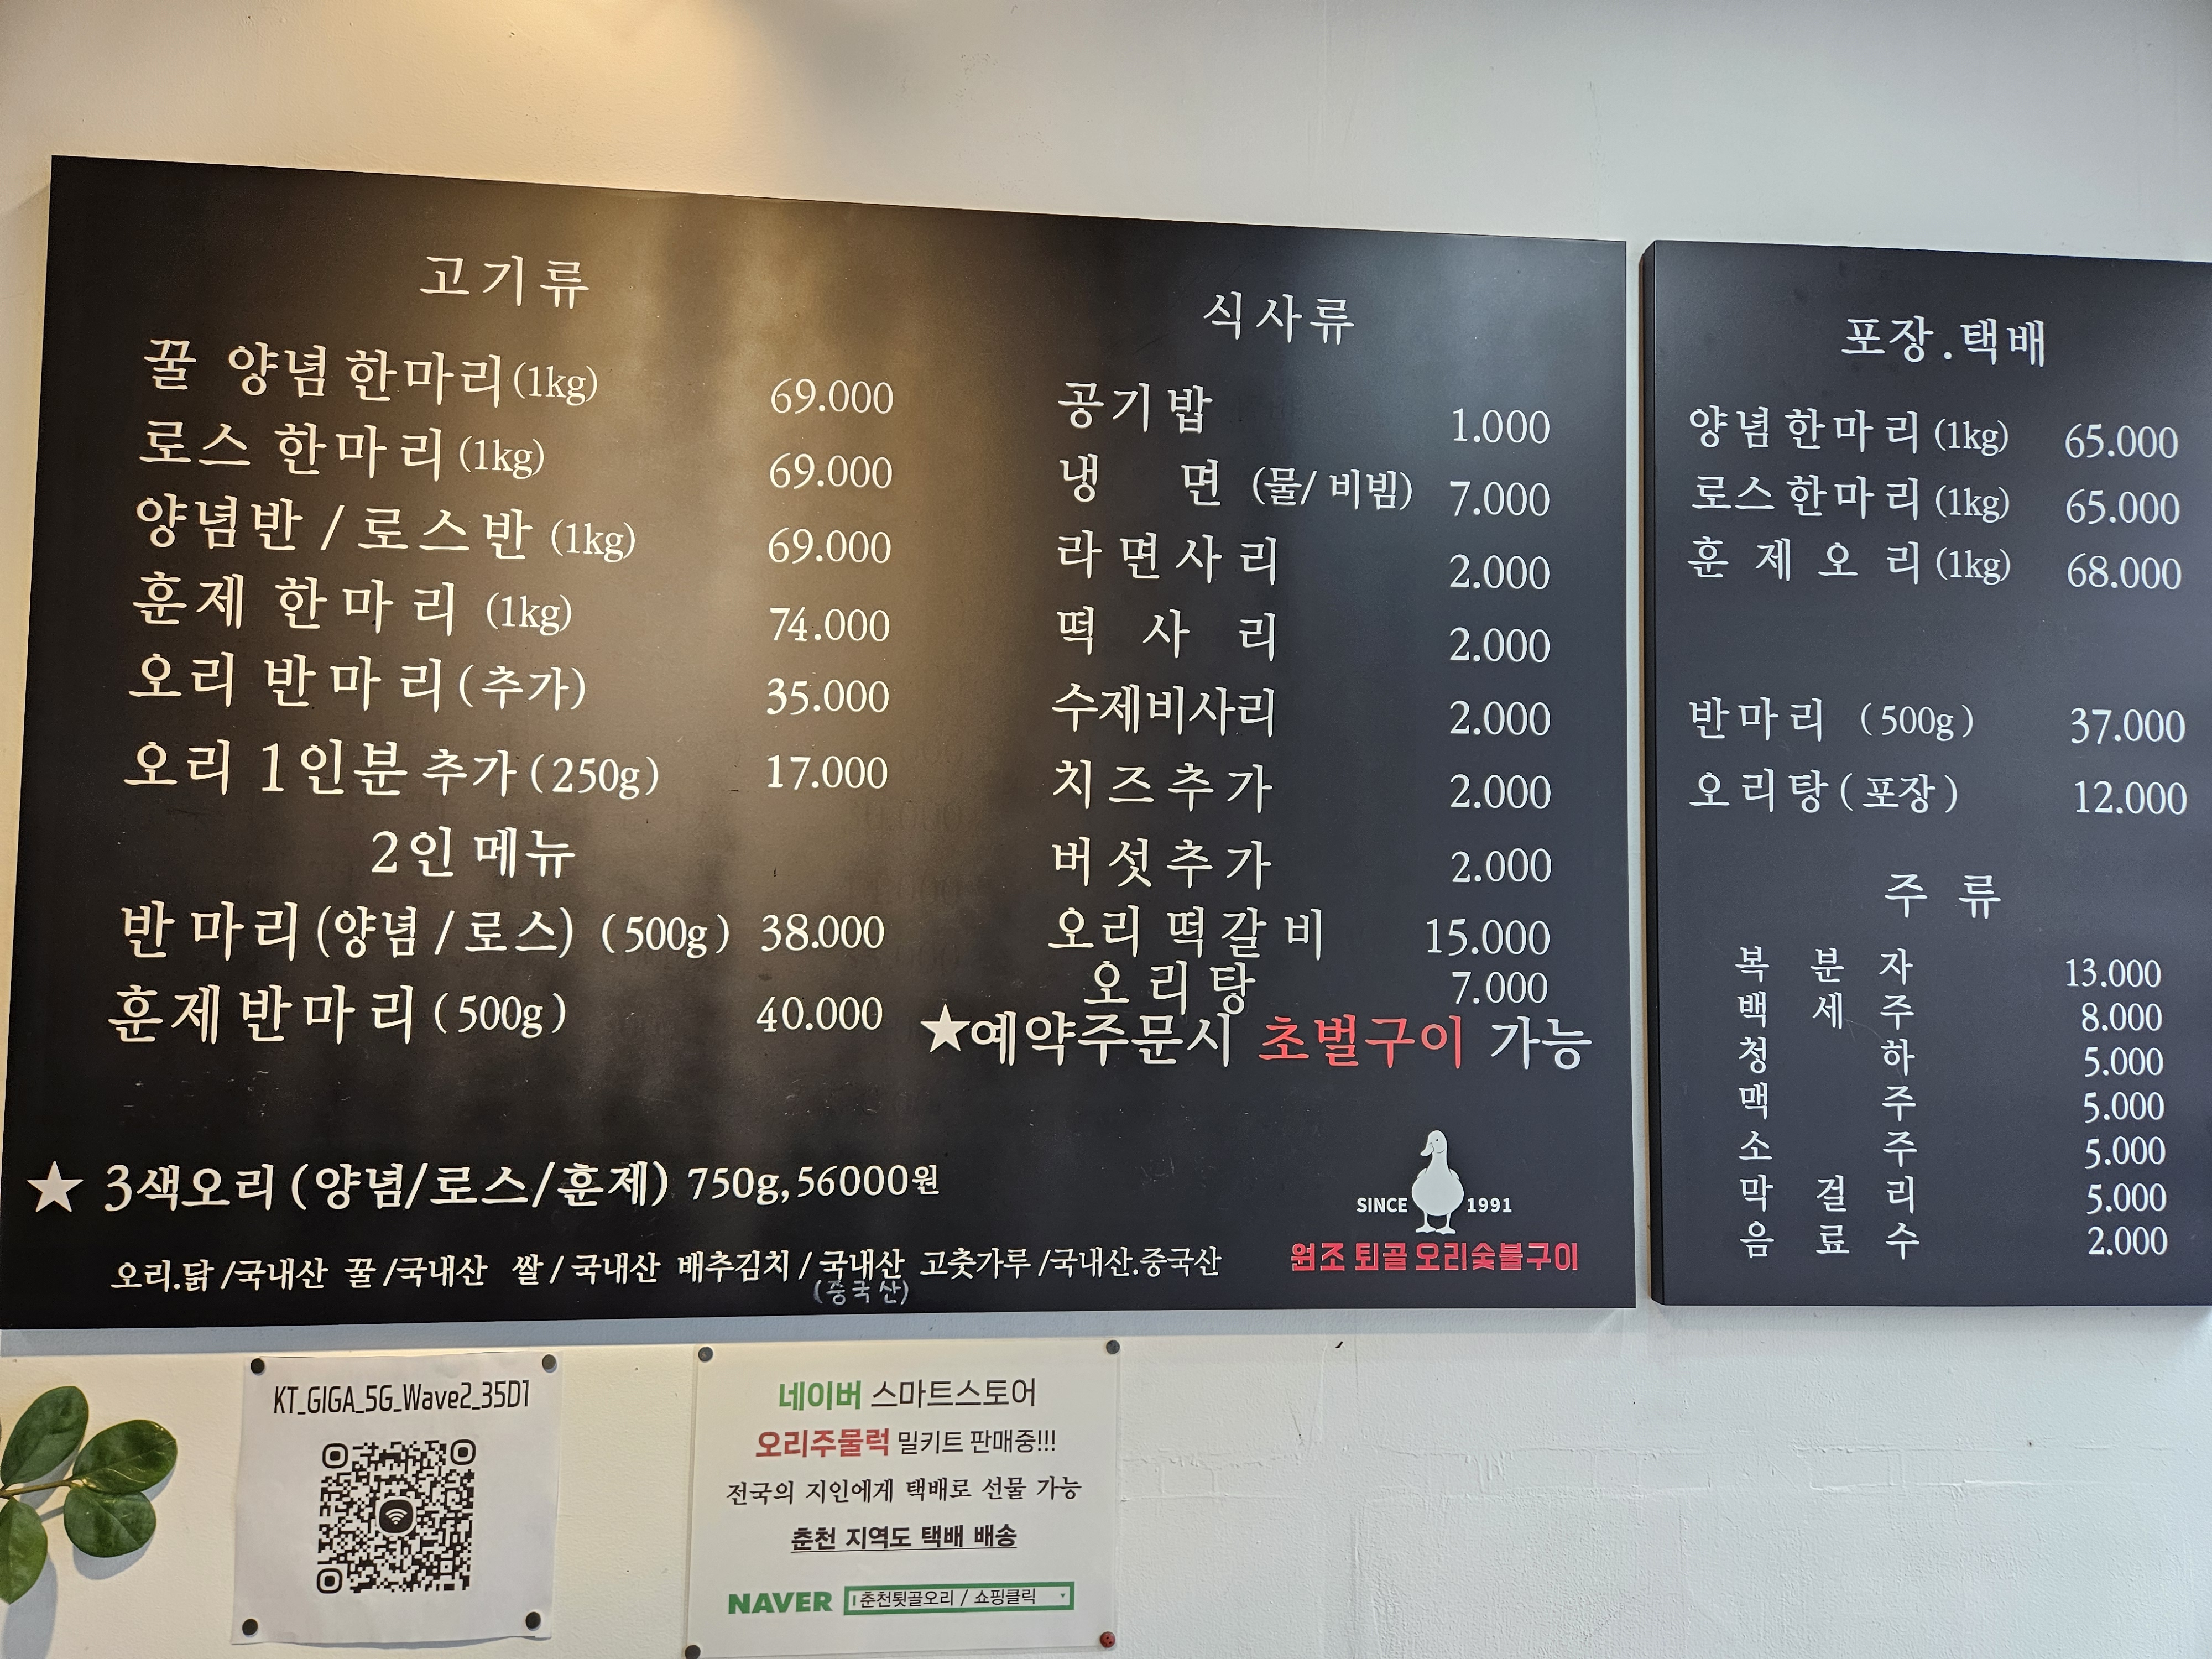 고기류
꿀 양념 한마리(1kg) 69.000
로스 한마리(1kg) 69.000
양념반 / 로스반 (1kg) 69.000
훈제 한마리 (1kg) 74.000
오리 반마리(추가) 35.000
오리 1인분 추가(250g) 17.000
2인 메뉴
반마리(양념/로스) (500g) 38.000
훈제반마리(500g) 40.000
식사류
공기밥 1.000
냉면 (물/비빔) 7.000
라면사리 2.000
떡사리 2.000
수제비사리 2.000
치즈추가 2.000
버섯추가 2.000
오리 떡갈비 15.000
오리탕 7.000
★예약주문시 초벌구이 가능
★ 3색오리(양념/로스/훈제) 750g,56000원
오리.닭/국내산 꿀/국내산 쌀/국내산 배추김치/국내산 고춧가루/국내산.중국산
(중국산)
SINCE 1991
원조 퇴골 오리숯불구이
포장.택배
양념한마리(1kg) 65.000
로스한마리(1kg) 65.000
훈제오리(1kg) 68.000
반마리 (500g) 37.000
오리탕(포장) 12.000
주류
복분자 13.000
백세주 8.000
청하 5.000
맥주 5.000
소주 5.000
막걸리 5.000
음료수 2.000
KT_GIGA_5G_Wave2_35D1
네이버 스마트스토어
오리주물럭 밀키트 판매중!!!
전국의 지인에게 택배로 선물 가능
춘천 지역도 택배 배송
NAVER 춘천툇골오리 / 쇼핑클릭